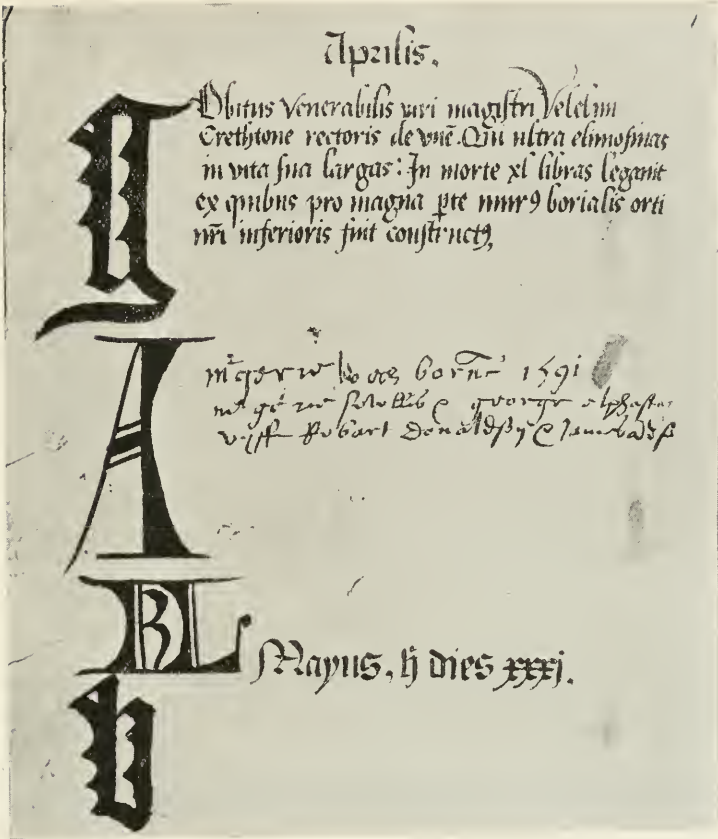 Aprilis.
Obitus venerabilis viri magistri Velelmi
Crethtone rectoris de vnē. Qui ultra elimosinas
in vita sua largas: In morte xl libras legauit
ex quibus pro magna pte murꝰ borialis orti
nrī inferioris fuit constructꝰ
A
born 1591
george
vyff Robart Donaldson
KL
Mayus. h̄ dies xxxi.
b